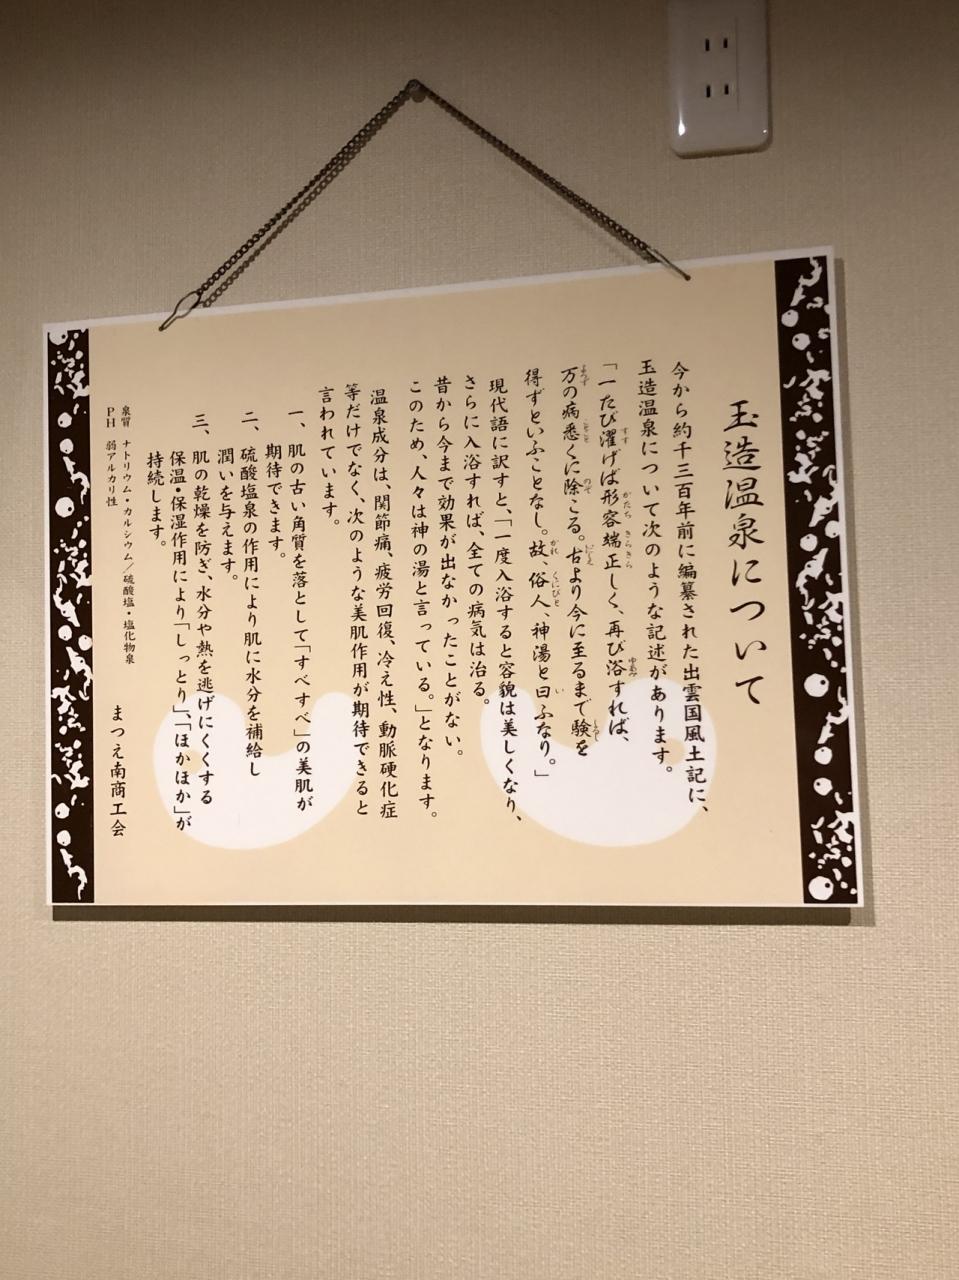 玉造温泉について
今から約千三百年前に編纂された出雲国風土記に、
玉造温泉について次のような記述があります。
「一たび濯げば形容端正しく、再び浴すれば、
万の病悉くに除こる。古より今に至るまで験を
得ずといふことなし。故、俗人、神湯と曰ふなり。」
現代語に訳すと、「一度入浴すると容貌は美しくなり、
さらに入浴すれば、全ての病気は治る。
昔から今まで効果が出なかったことがない。
このため、人々は神の湯と言っている。」となります。
温泉成分は、関節痛、疲労回復、冷え性、動脈硬化症
等だけでなく、次のような美肌作用が期待できると
言われています。
一、肌の古い角質を落として「すべすべ」の美肌が
期待できます。
二、硫酸塩泉の作用により肌に水分を補給し
潤いを与えます。
三、肌の乾燥を防ぎ、水分や熱を逃げにくくする
保温・保湿作用により「しっとり」、「ほかほか」が
持続します。
泉質 ナトリウム・カルシウム／硫酸塩・塩化物泉
PH 弱アルカリ性
まつえ南商工会